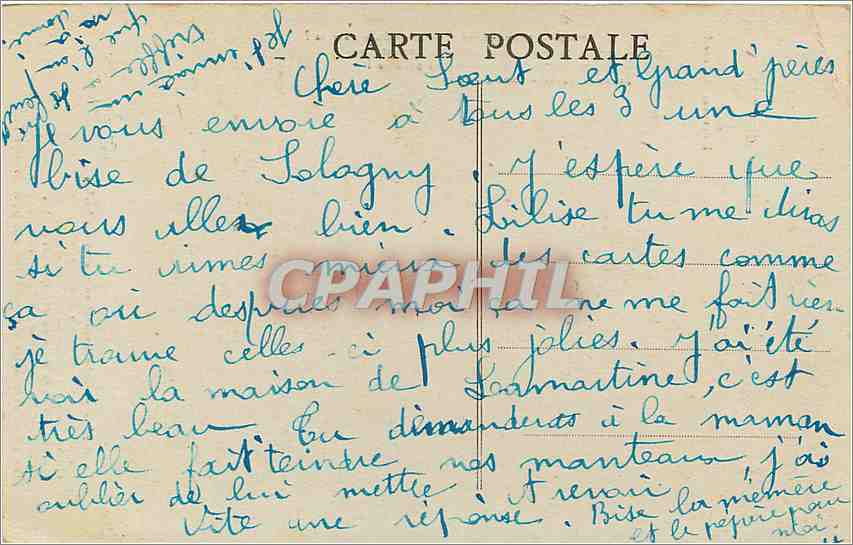 CARTE POSTALE
Chère Soeur et Grand'pères
Je vous envoie à tous les 3 une
bise de Sologny. J'espère que
vous allez bien. Lilise tu me diras
si tu aimes mieux des cartes comme
ça ou des vues moi ça ne me fait rien
je trouve celles-ci plus jolies. J'ai été
voir la maison de Lamartine, c'est
très beau Tu demanderas à la maman
si elle fait teindre nos manteaux, j'ai
oublier de lui mettre A revoir
Vite une réponse. Bise la mémère
et le pépère pour
moi.
Je t'envoie un
trèfle à
que l'on
m'a
donné.
CPAPHIL